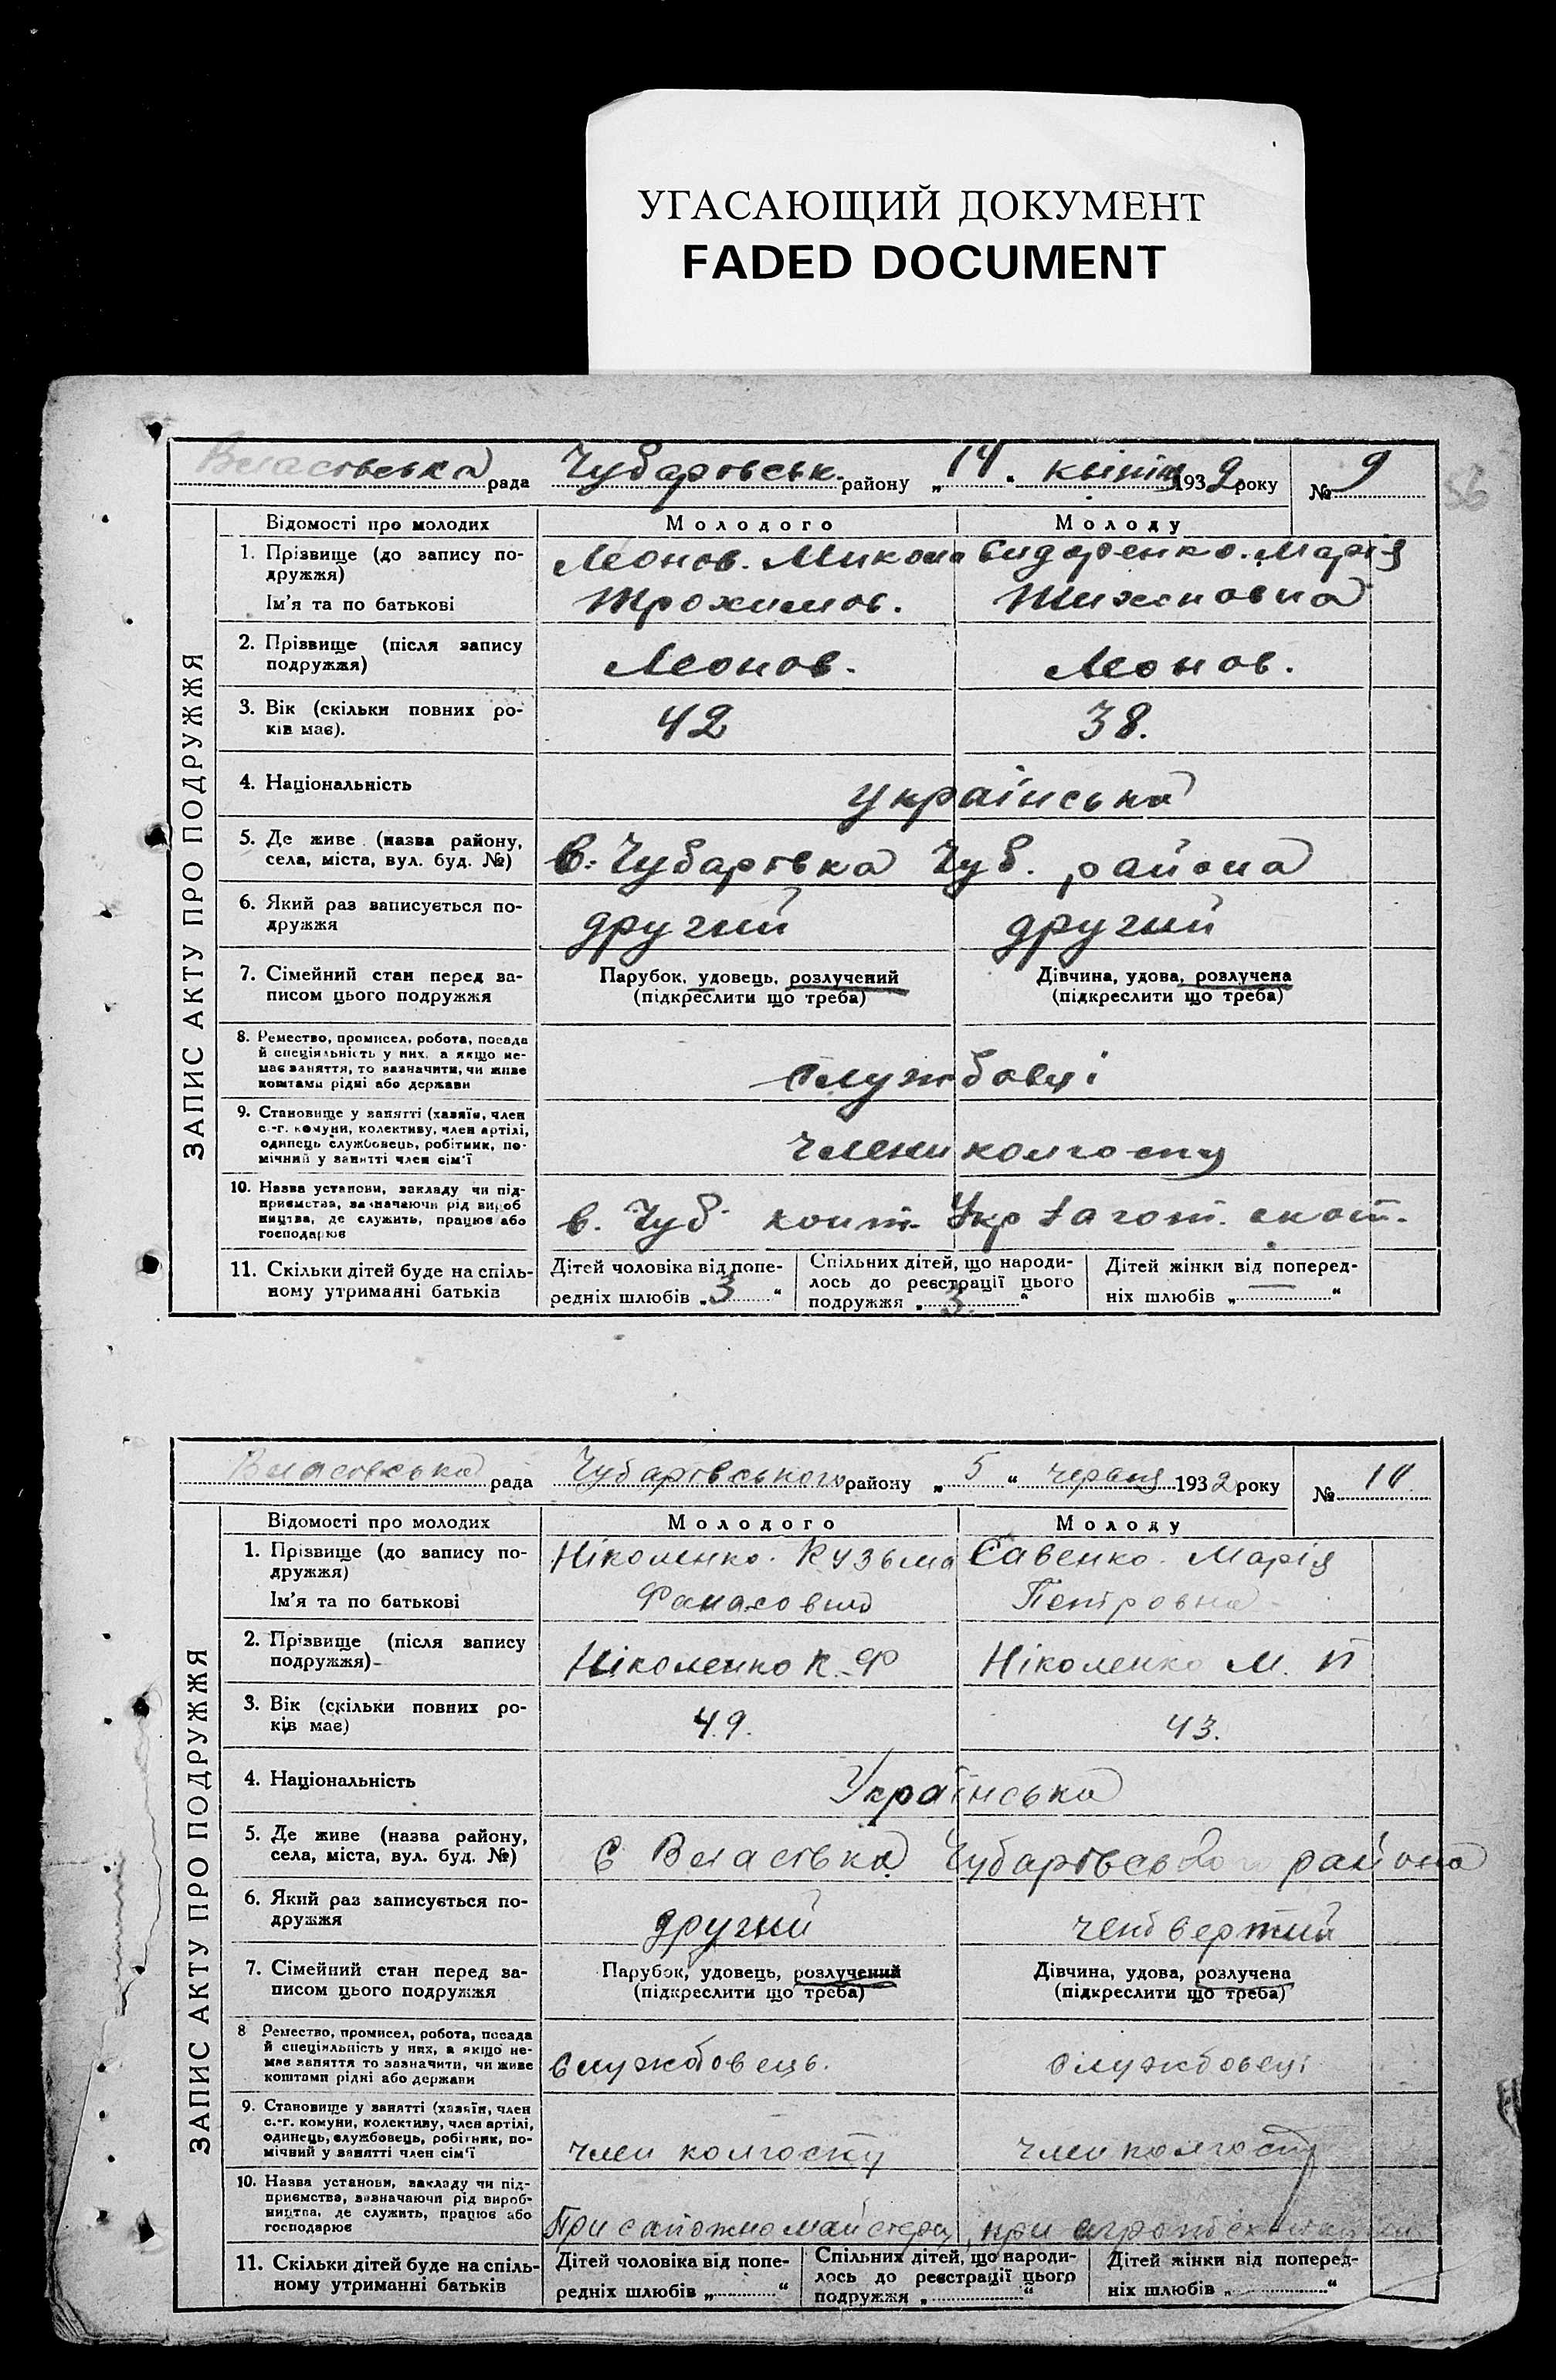 УГАСАЮЩИЙ ДОКУМЕНТ
FADED DOCUMENT
56
Власовська рада Чубаровськ. району „ 14 " квітня 1932 року № 9
ЗАПИС АКТУ ПРО ПОДРУЖЖЯ
Відомості про молодих Молодого Молоду
1. Прізвище (до запису по- Леонов. Микола Сидоренко. Марія
дружжя)
Ім'я та по батькові Трохимов. Тихоновна
2. Прізвище (після запису
подружжя) Леонов. Леонов.
3. Вік (скільки повних ро-
ків має). 42 38.
4. Національність українська
5. Де живе (назва району,
села, міста, вул. буд. №) в. Чубарівка Чуб. района
6. Який раз записується по-
дружжя другий другий
7. Сімейний стан перед за- Парубок, удовець, розлучений Дівчина, удова, розлучена
писом цього подружжя (підкреслити що треба) (підкреслити що треба)
8. Ремество, промисел, робота, посада
й спеціяльність у них, а якщо не-
має заняття, то зазначити, чи живе службовці
коштами рідні або держави
9. Становище у занятті (хазяїн, член
с.-г. комуни, колективу, член артілі,
одинець службовець, робітник, по- члени колгоспу
мічний у занятті член сім'ї
10. Назва установи, закладу чи під-
приємства, зазначаючи рід вироб
ництва, де служить, працює або в. Чуб. конт. Укр загот. скот.
господарює
11. Скільки дітей буде на спіль- Дітей чоловіка від попе- Спільних дітей, що народи- Дітей жінки від поперед-
ному утриманні батьків редніх шлюбів „ 3 “ лось до реєстрації цього ніх шлюбів „ — “
подружжя „ 3. “
Власовська рада Чубарівського району „ 5 “ червня 1932 року № 10
ЗАПИС АКТУ ПРО ПОДРУЖЖЯ
Відомості про молодих Молодого Молоду
1. Прізвище (до запису по- Ніколенко. Кузьма Савенко. Марія
дружжя)
Ім'я та по батькові Фанасович Петровна
2. Прізвище (після запису
подружжя) Ніколенко К. Ф Ніколенко М. П
3. Вік (скільки повних ро-
ків має) 49. 43.
4. Національність Українська
5. Де живе (назва району,
села, міста, вул. буд. №) с Власівка Чубарівського района
6. Який раз записується по-
дружжя другий четвертий
7. Сімейний стан перед за- Парубок, удовець, розлучений Дівчина, удова, розлучена
писом цього подружжя (підкреслити що треба) (підкреслити що треба)
8 Ремество, промисел, робота, посада
й спеціяльність у них, а якщо не-
має заняття то зазначити, чи живе службовець. службовець
коштами рідні або держави
9. Становище у занятті (хазяїн, член
с.-г. комуни, колективу, член артілі,
одинець, службовець, робітник, по-
мічний у занятті член сім'ї член колгоспу член колгоспу
10. Назва установи, закладу чи під-
приємства, зазначаючи рід вироб-
ництва, де служить, працює або
господарює При сапожно майстерн, при
11. Скільки дітей буде на спіль- Дітей чоловіка від попе- Спільних дітей, що народи- Дітей жінки від поперед-
ному утриманні батьків редніх шлюбів „ “ лось до реєстрації цього ніх шлюбів „ “
подружжя „ “